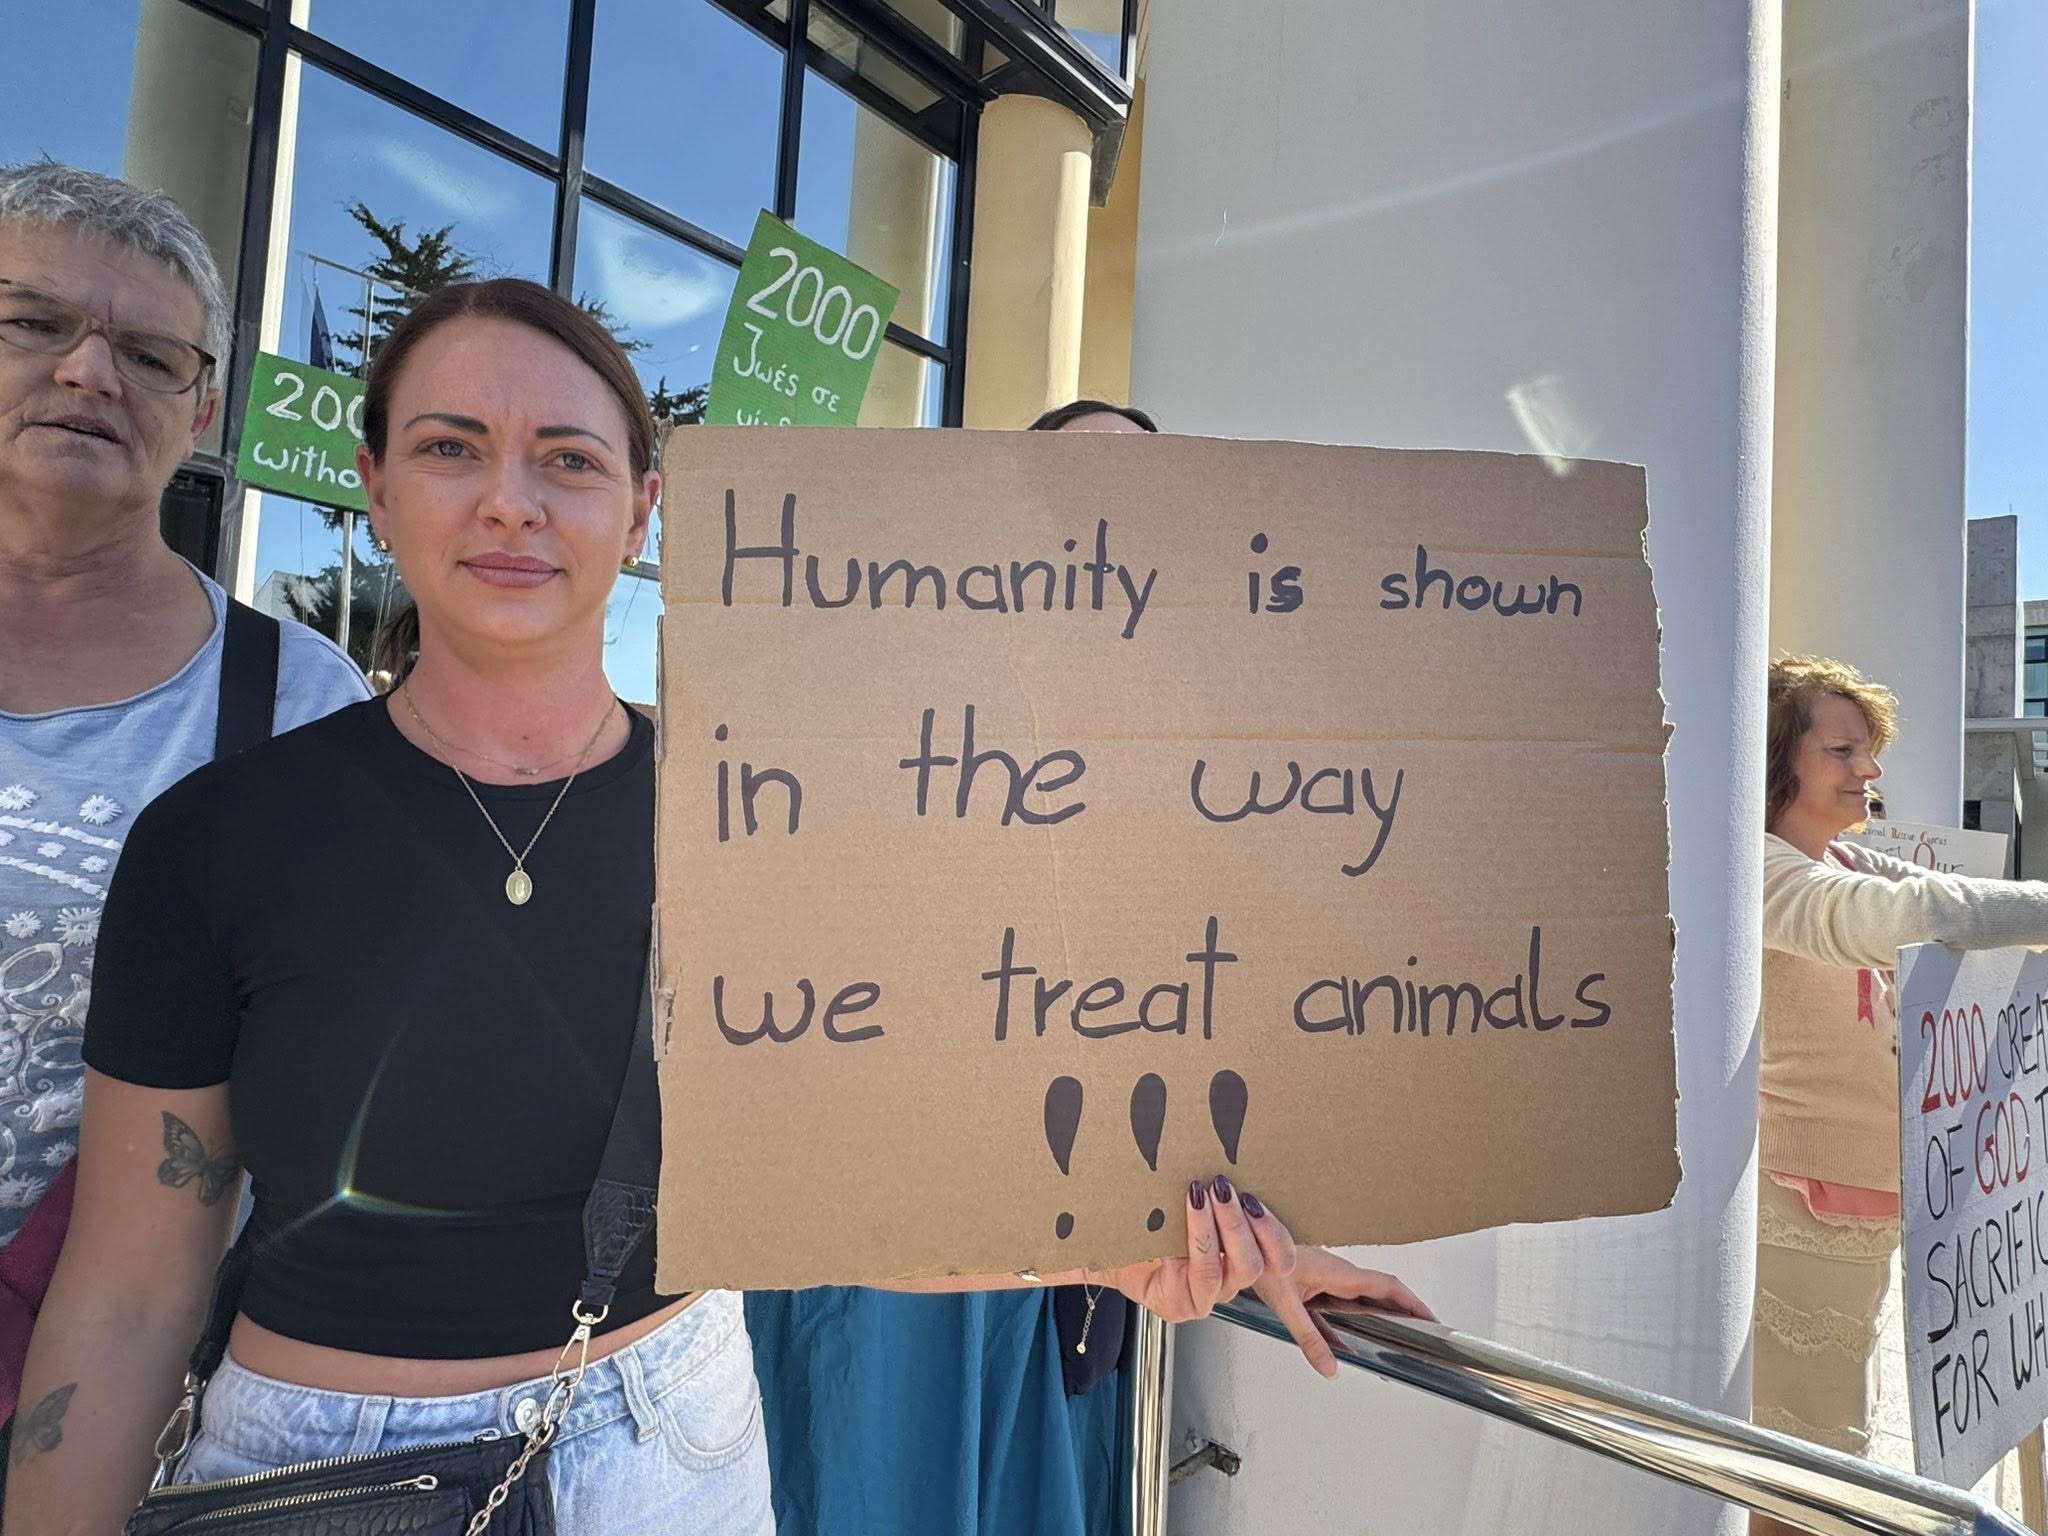 2000
Ζωές σε
200
witho
Humanity is shown
in the way
we treat animals
!!!
Rescue Cyprus
Our
2000 CREAT
OF GOD T
SACRIFIC
FOR WH